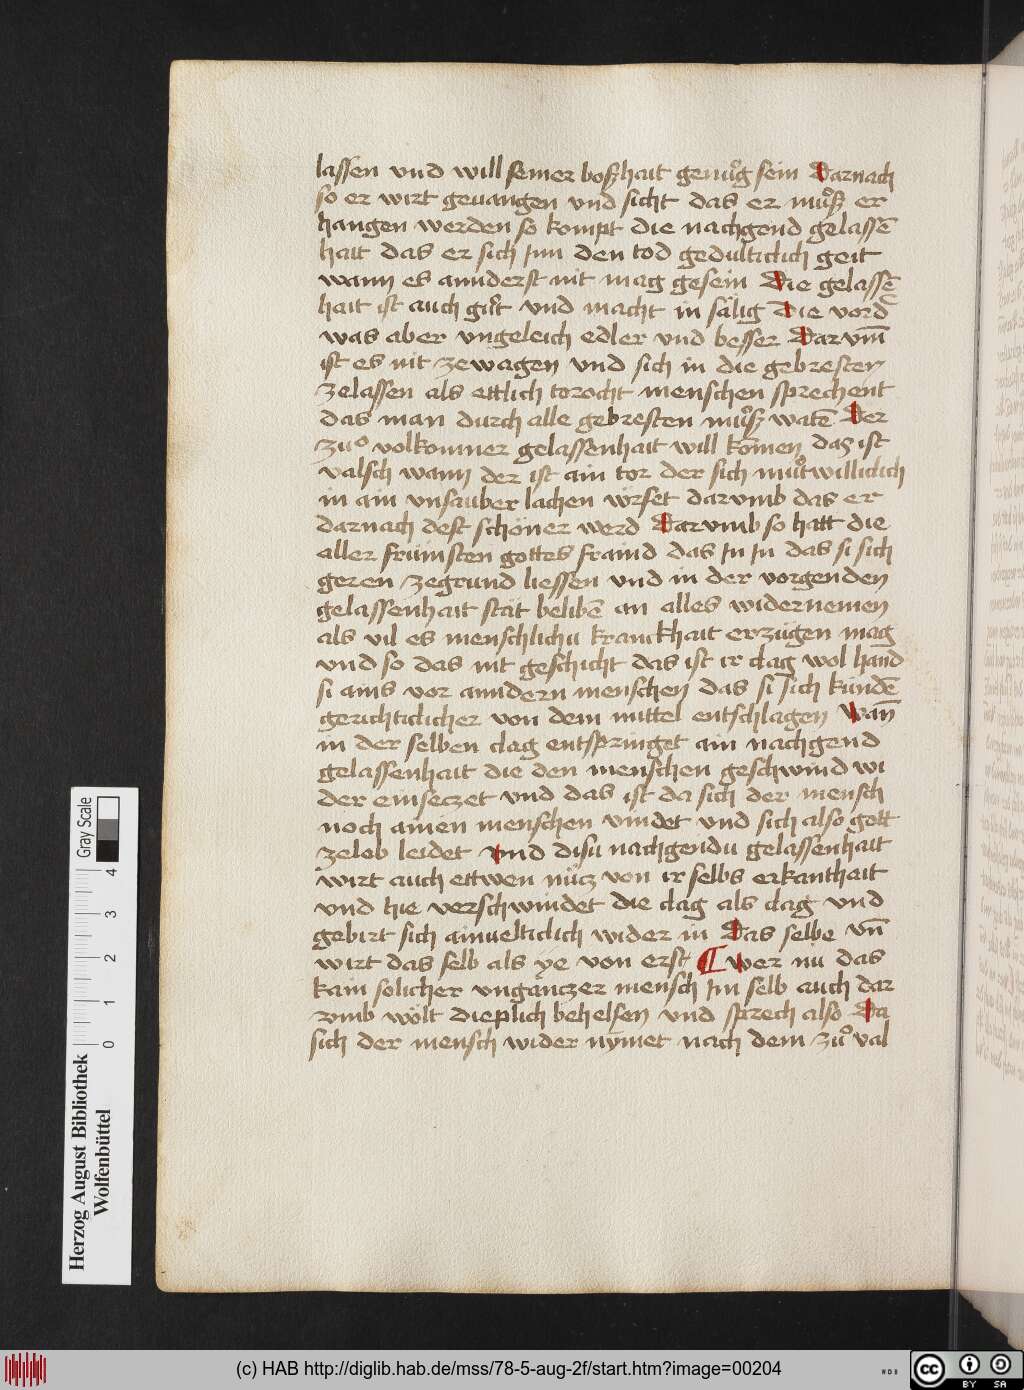 lassen vnd will seiner boßhait genuͦg sein Darnach
so er wirt geuangen vnd sicht das er muͦß er
hangen werden so kompt die nachgend gelassē
hait das er sich Inn den tod gedulticlich geit
wann es annderst nit mag gesein Die gelassē
hait ist auch guͦt vnd macht in sälig Die vord
was aber vngeleich edler vnd besser Darvm̄
ist es nit zewagen vnd sich in die gebresten
zelassen als ettlich torocht menschen sprechent
das man durch alle gebresten muͦß watē Der
zuͦ volkomner gelassenhait will komen das ist
valsch wann der ist ain tor der sich muͦtwilliclich
in ain vnsauber lachen würfet darvmb das er
darnach dest schöner werd Darvmb so hatt die
aller frümsten gottes fraind das In In das si sich
geren zegrund liessen vnd in der vorgenden
gelassenhait stät belibē an alles widernemen
als vil es menschlichu kranckhait erzügen mag
vnd so das nit geschicht das ist ir clag wol hand
si ains vor anndern menschen das si sich kündē
gerichticlicher von dem mittel entschlagen Wan̄
in der selben clag entspringet ain nachgend
gelassenhait die den menschen geschwind wi
der einseczet vnd das ist da sich der mensch
noch ainen menschen vindet vnd sich also gott
zelob leidet Vnd disu nachgendu gelassenhait
wirt auch ettwen nücz von ir selbs erkanthait
vnd hie verschwindet die clag als clag vnd
gebirt sich ainuelticlich wider in Das selbe vn̄
wirt das selb als ye von erst ¶ Wer nu das
kain solicher vngänczer mensch Im selb auch dar
vmb wölt dieplich behelfen vnd sprech also Da
sich der mensch wider nymet nach dem zuͦ val
Herzog August Bibliothek
Wolfenbüttel
0 1 2 3 4
Gray Scale
(c) HAB http://diglib.hab.de/mss/78-5-aug-2f/start.htm?image=00204
WDB
cc BY SA